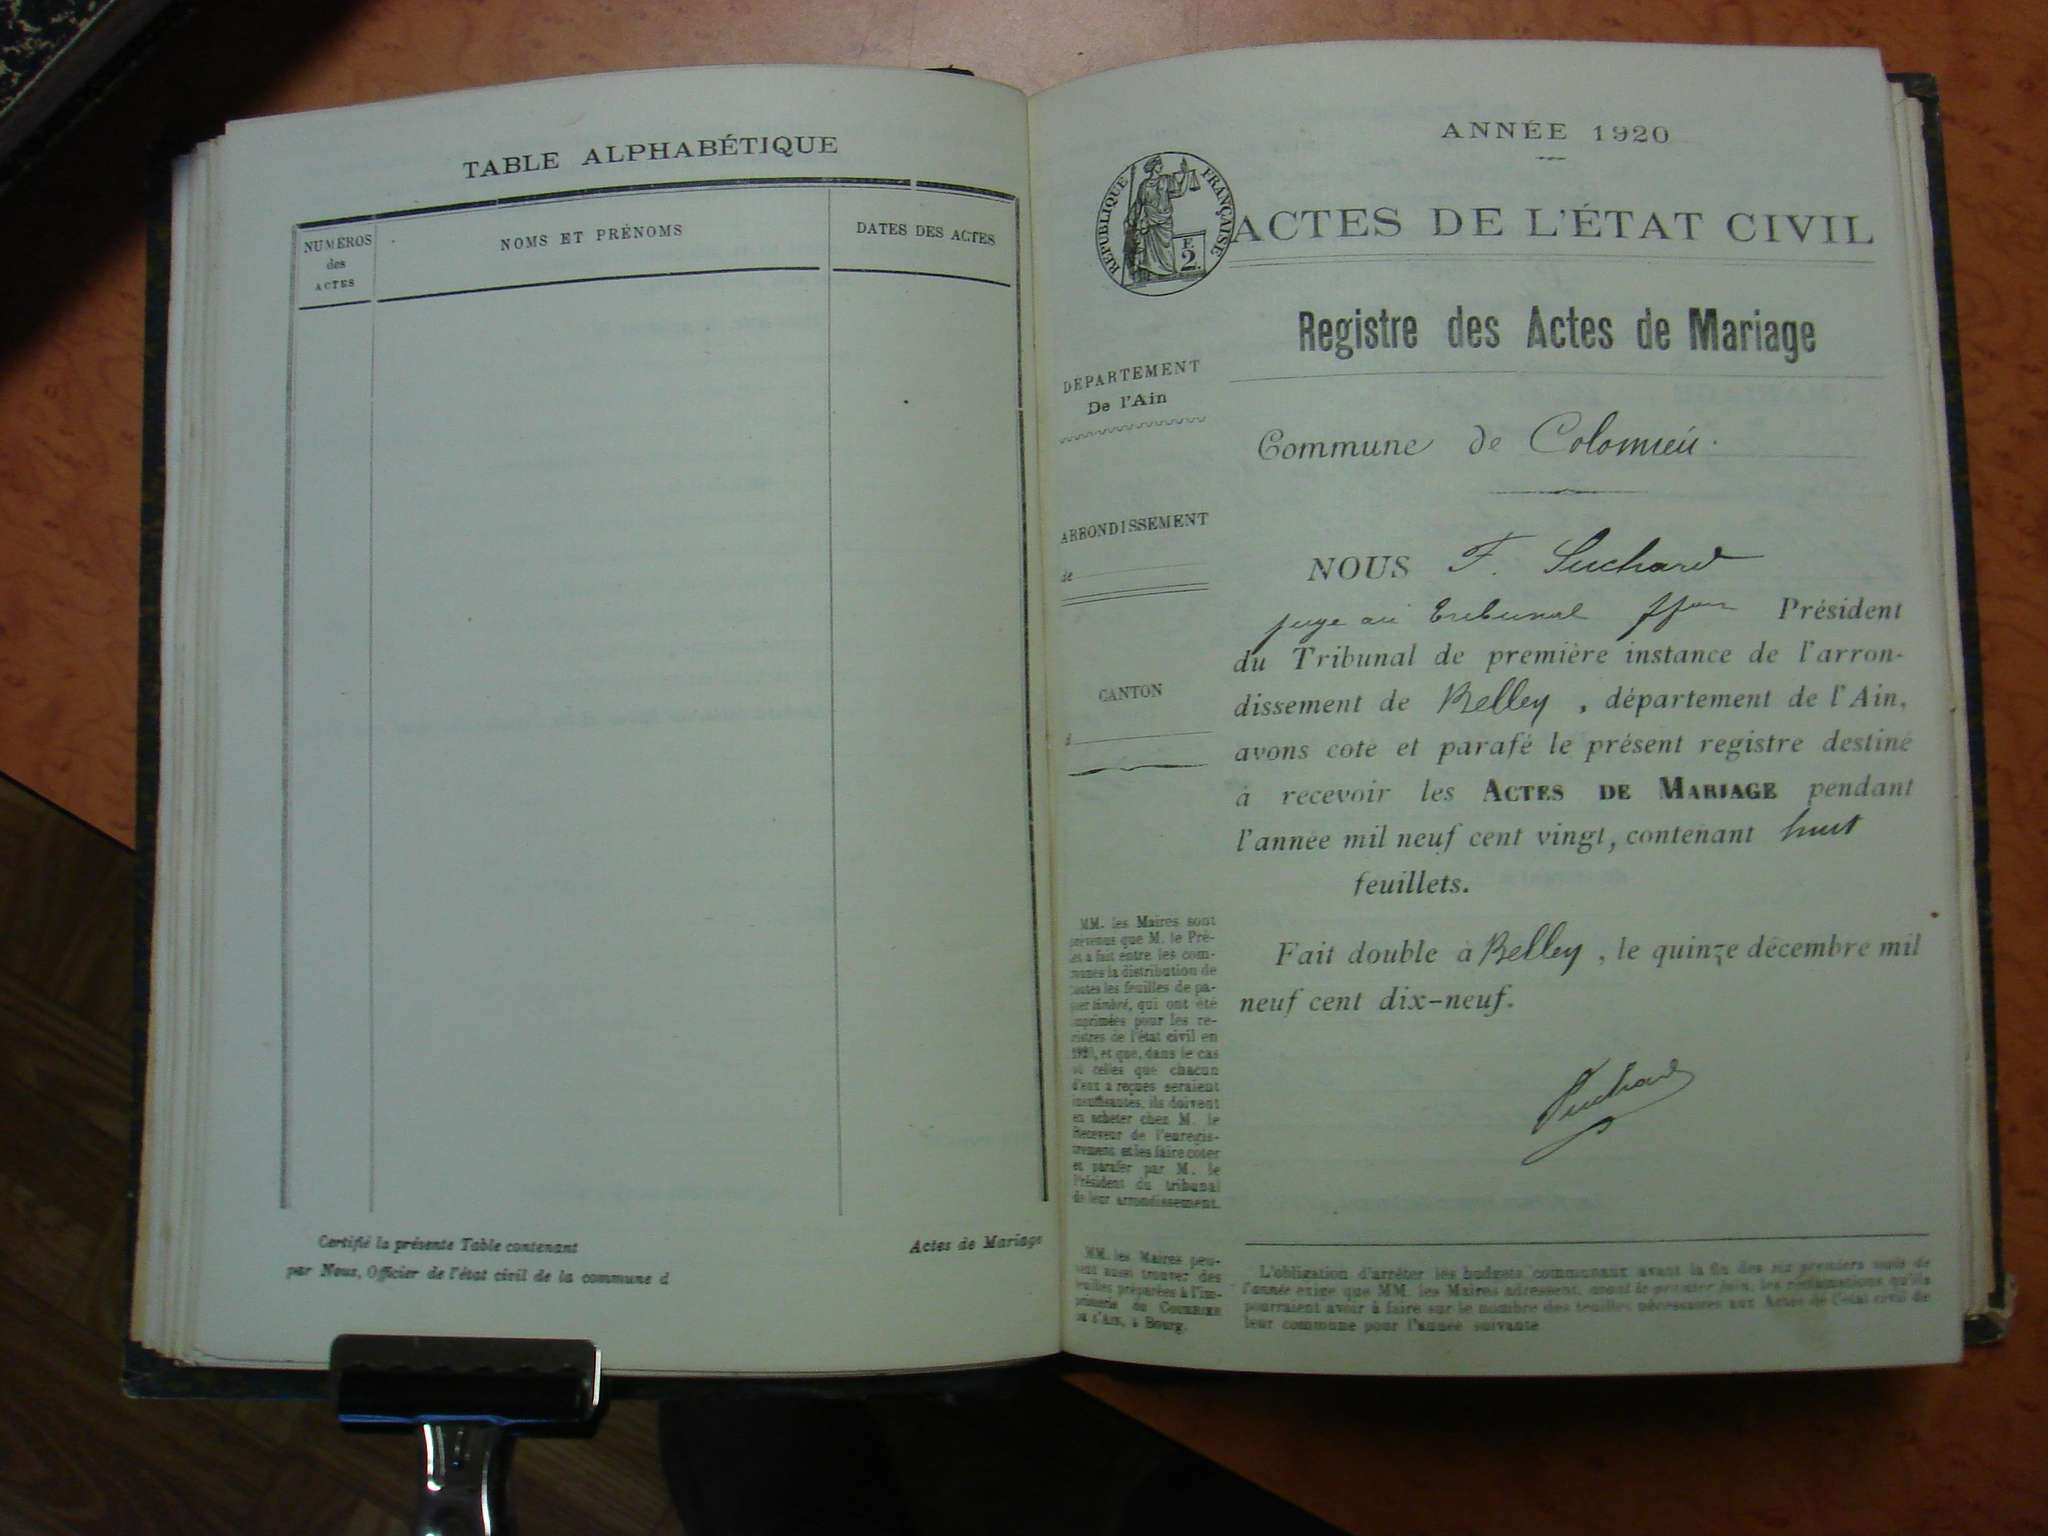 TABLE ALPHABÉTIQUE
NUMÉROS
des
ACTES
NOMS ET PRÉNOMS
DATES DES ACTES
Certifié la présente Table contenant
Actes de Mariage
par Nous, Officier de l'état civil de la commune d
ANNÉE 1920
RÉPUBLIQUE FRANÇAISE
F.
2.
ACTES DE L'ÉTAT CIVIL
Registre des Actes de Mariage
DÉPARTEMENT
De l'Ain
Commune de Colomieu.
ARRONDISSEMENT
de
CANTON
NOUS F. Suchard
juge au tribunal ffon Président
du Tribunal de première instance de l'arron-
dissement de Belley, département de l'Ain,
avons coté et parafé le présent registre destiné
à recevoir les ACTES DE MARIAGE pendant
l'année mil neuf cent vingt, contenant huit
feuillets.
Fait double à Belley, le quinze décembre mil
neuf cent dix-neuf.
Suchard
MM. les Maires sont
prévenus que M. le Pré-
fet a fait entre les com-
munes la distribution de
toutes les feuilles de pa-
pier timbré, qui ont été
imprimées pour les re-
gistres de l'état civil en
1920, et que, dans le cas
où celles que chacun
d'eux a reçues seraient
insuffisantes, ils doivent
en acheter chez M. le
Receveur de l'enregis-
trement et les faire coter
et parafer par M. le
Président du tribunal
de leur arrondissement.
MM. les Maires peu-
vent aussi trouver des
feuilles préparées à l'im-
primerie du COURRIER
DE L'AIN, à Bourg.
L'obligation d'arrêter les budgets communaux avant la fin des six premiers mois de
l'année exige que MM. les Maires adressent, avant le premier juin, les réclamations qu'ils
pourraient avoir à faire sur le nombre des feuilles nécessaires aux Actes de l'état civil de
leur commune pour l'année suivante